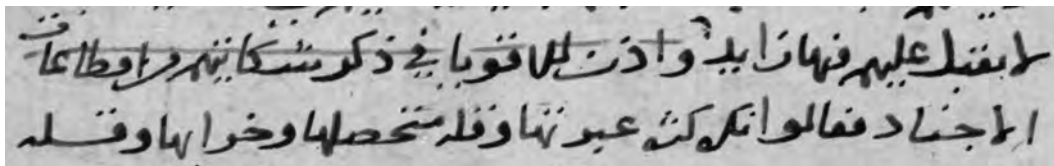 لا يقبل عليهم فيها زايد واذن للاقويا في ذكر شكايتهم من اقطاعات
الاجناد فقالوا انكم كثر عبرتها وقله متحصلها وخرابها وقسله